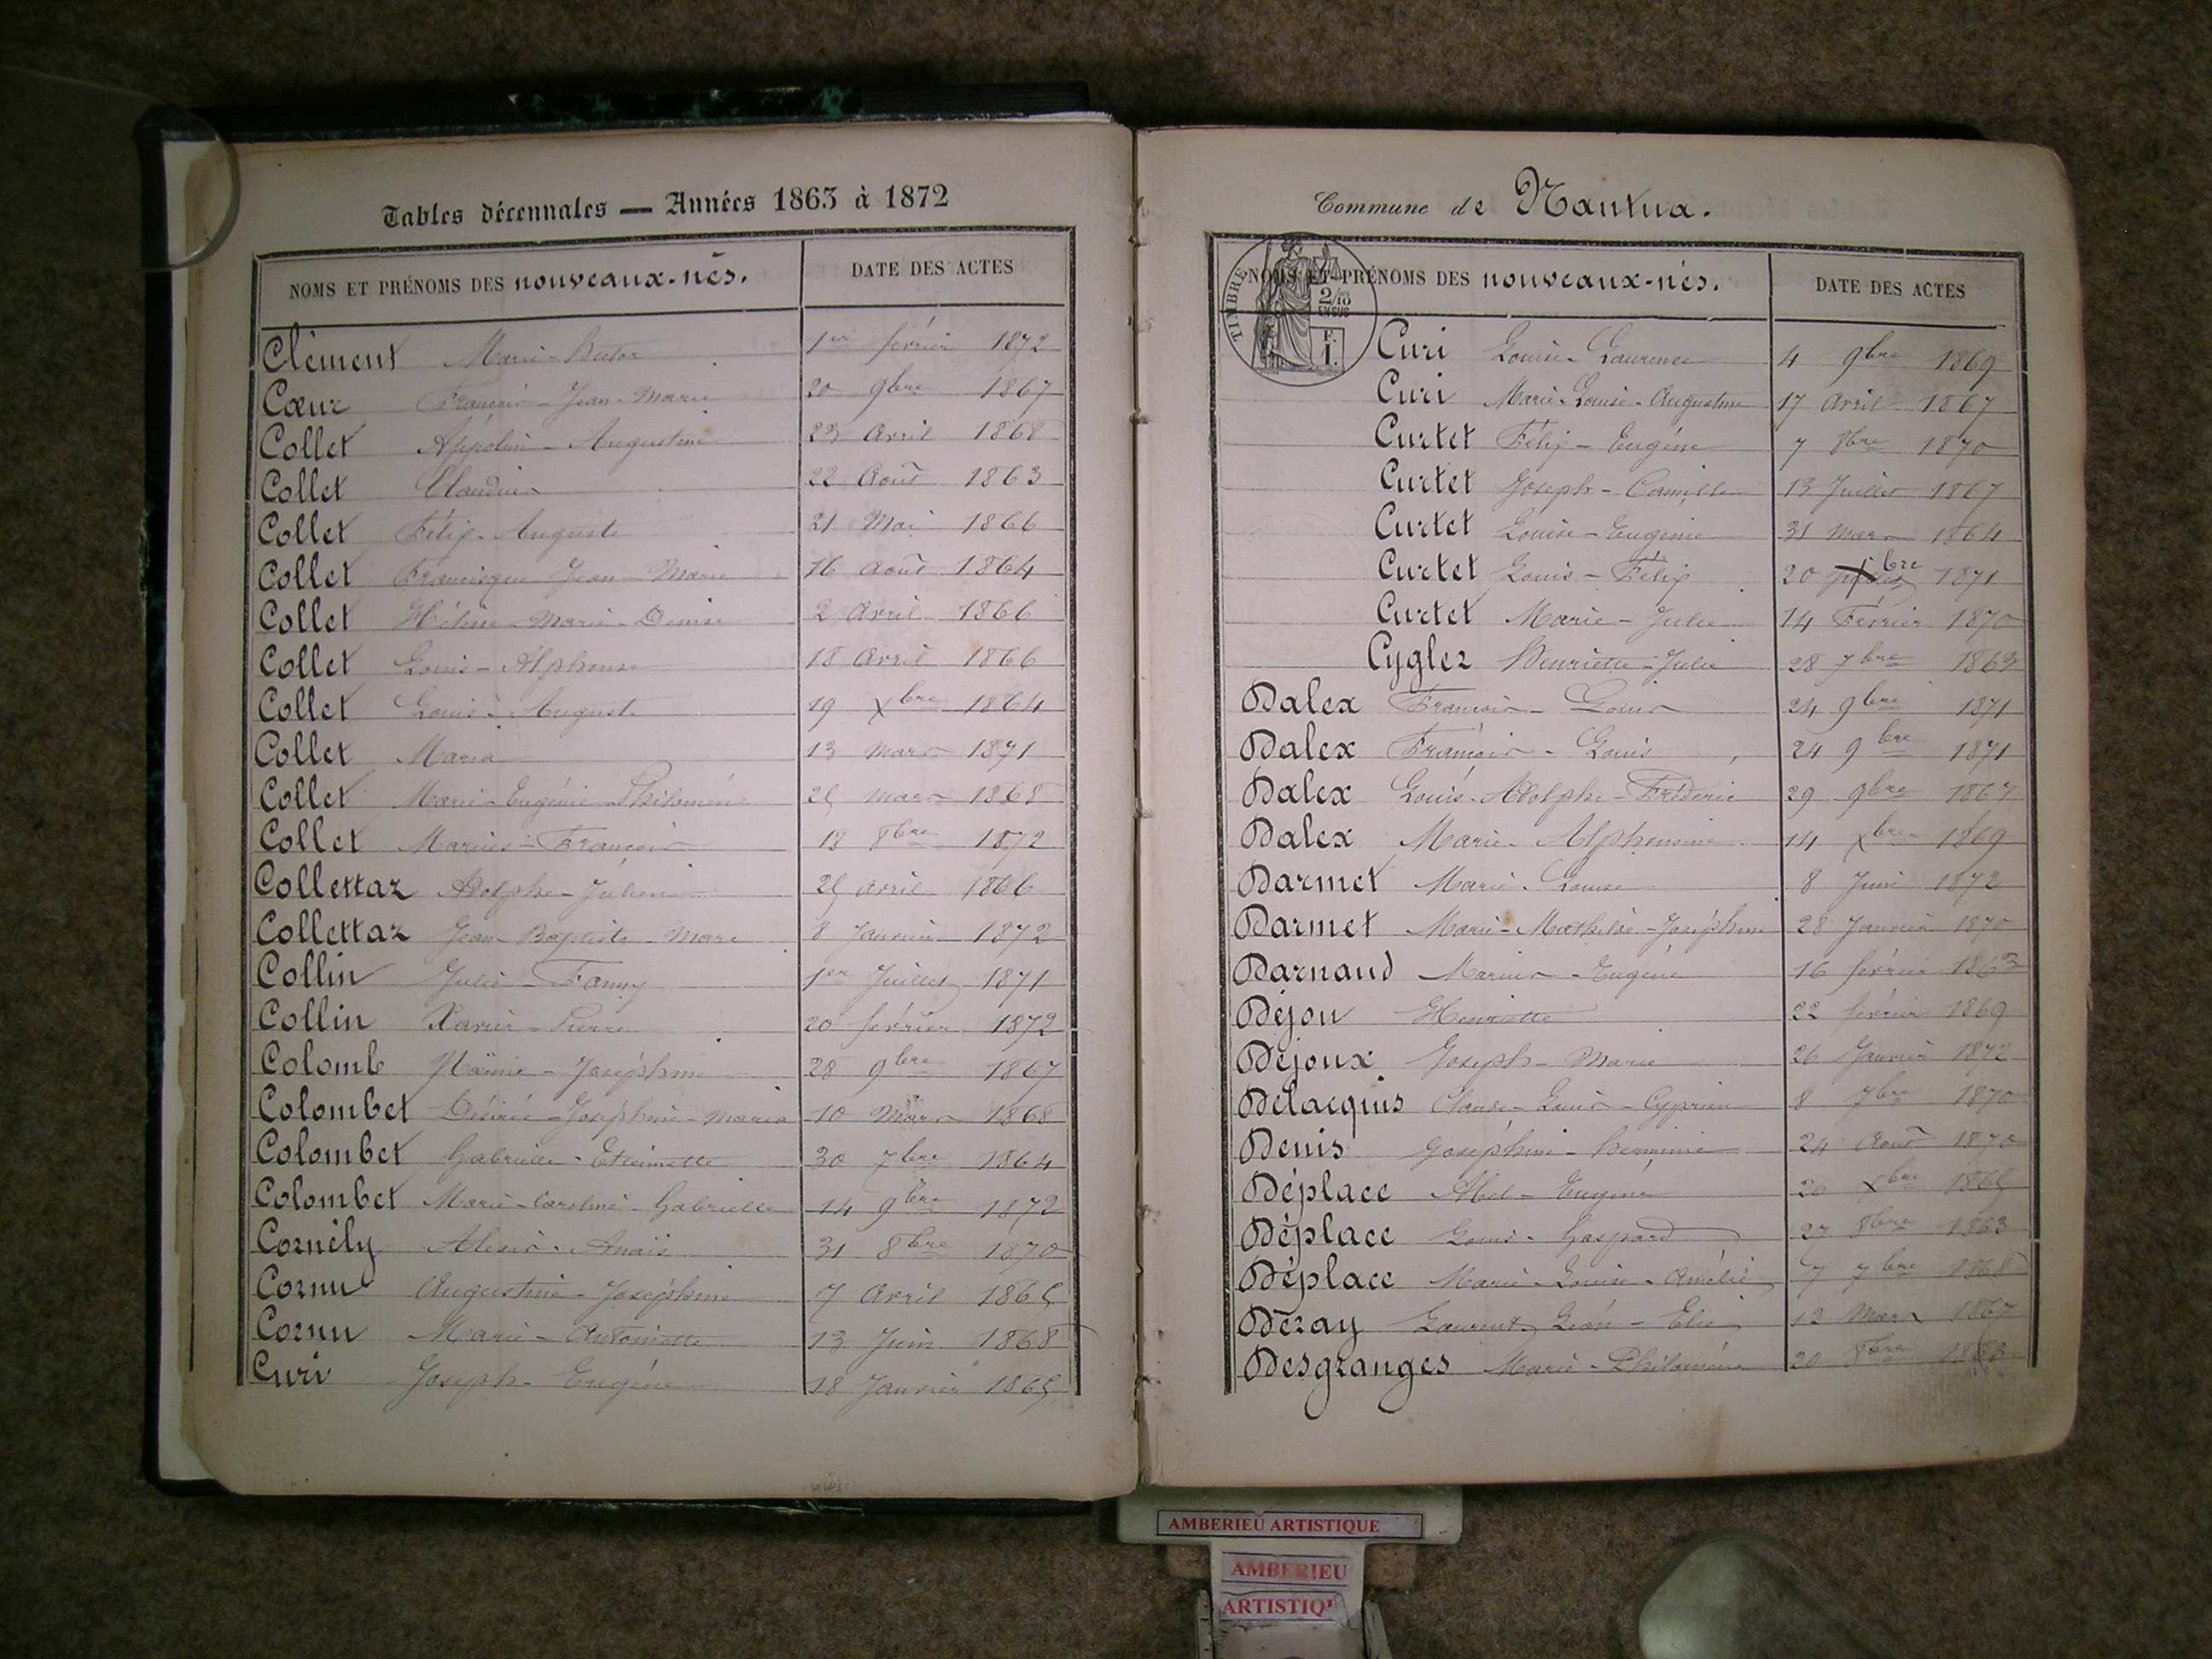 Tables décennales — Années 1863 à 1872
NOMS ET PRÉNOMS DES nouveaux-nés. DATE DES ACTES
Clément Marie- 1er février 1872
Cœur François-Jean-Marie 20 9bre 1867
Collet Appolini-Augustine 23 Avril 1868
Collet Claudius 22 Août 1863
Collet Félix-Auguste 21 Mai 1866
Collet Francisque Jean-Marie 16 Août 1864
Collet Hélène-Marie-Denise 2 Avril 1866
Collet Louis-Alphonse 18 Avril 1866
Collet Louis-Auguste 19 Xbre 1864
Collet Maria 13 Mars 1871
Collet Marie-Eugénie-Philomène 25 Mars 1868
Collet Marius-François 18 8bre 1872
Collettaz Adolphe-Julien 25 Avril 1866
Collettaz Jean-Baptiste-Marc 8 Janvier 1872
Collin Julie-Fanny 1er Juillet 1871
Collin Xavier-Pierre 20 février 1872
Colomb Joséphine 28 9bre 1867
Colombet Désirée-Joséphine-Maria 10 Mars 1868
Colombet Gabrielle-Etiennette 30 7bre 1864
Colombet Marie-Caroline-Gabrielle 14 9bre 1872
Cornély Alexis-Anaïs 31 8bre 1870
Cornu Augustine-Joséphine 7 Avril 1865
Cornu Marie-Antoinette 13 Juin 1868
Curi Joseph-Eugène 18 Janvier 1865
Commune de Nantua.
NOMS ET PRÉNOMS DES nouveaux-nés. DATE DES ACTES
TIMBRE
2/10
EN SUS
F.
1.
Curi Louise-Laurence 4 9bre 1869
Curi Marie-Louise-Augustine 17 Avril 1867
Curtet Félix-Eugène 7 8bre 1870
Curtet Joseph-Camille 13 Juillet 1867
Curtet Louise-Eugénie 31 Mars 1864
Curtet Louis-Félix 20 bre 1871
Curtet Marie-Julie 14 Février 1870
Cygler Henriette-Julie 28 7bre 1863
Dalex François-Louis 24 9bre 1871
Dalex François-Louis 24 9bre 1871
Dalex Louis-Adolphe-Frédéric 29 9bre 1867
Dalex Marie-Alphonsine 14 Xbre 1869
Darmet Marie-Louise 8 Juin 1872
Darmet Marie-Mathilde-Joséphine 28 Janvier 1870
Darnaud Marius-Eugène 16 février 1863
Déjou Henriette 22 février 1869
Déjoux Joseph-Marie 26 Janvier 1872
Délacquis Claude-Louis-Cyprien 8 7bre 1870
Denis Joséphine-herminie 24 Août 1870
Déplace Abel-Eugène 26 Xbre 1865
Déplace Louis-Gaspard 27 8bre 1863
Déplace Marie-Louise-Amélie 7 7bre 1868
Déray Laurent Léon-Elie 12 Mars 1867
Desgranges Marie-Philomène 20 8bre
AMBERIEU ARTISTIQUE
AMBERIEU
ARTISTIQU